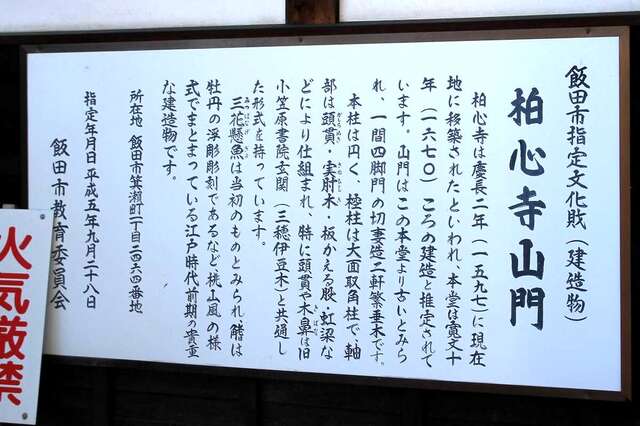 飯田市指定文化財(建造物)
柏心寺山門
柏心寺は慶長二年(一五九七)に現在
地に移築されたといわれ、本堂は寛文十
年(一六七〇)ころの建造と推定されて
います。山門はこの本堂より古いとみら
れ、一間四脚門の切妻造二軒繁垂木です。
本柱は円く、控柱は大面取角柱で、軸
部は頭貫・実肘木・板かえる股・虹梁な
どにより仕組まれ、特に頭貫や木鼻は旧
小笠原書院玄関(三穂伊豆木)と共通し
た形式を持っています。
三花懸魚は当初のものとみられ、鰭は
牡丹の浮彫彫刻であるなど、桃山風の様
式でまとまっている江戸時代前期の貴重
な建造物です。
所在地 飯田市箕瀬町一丁目二四六四番地
指定年月日 平成五年九月二十八日
飯田市教育委員会
火気厳禁